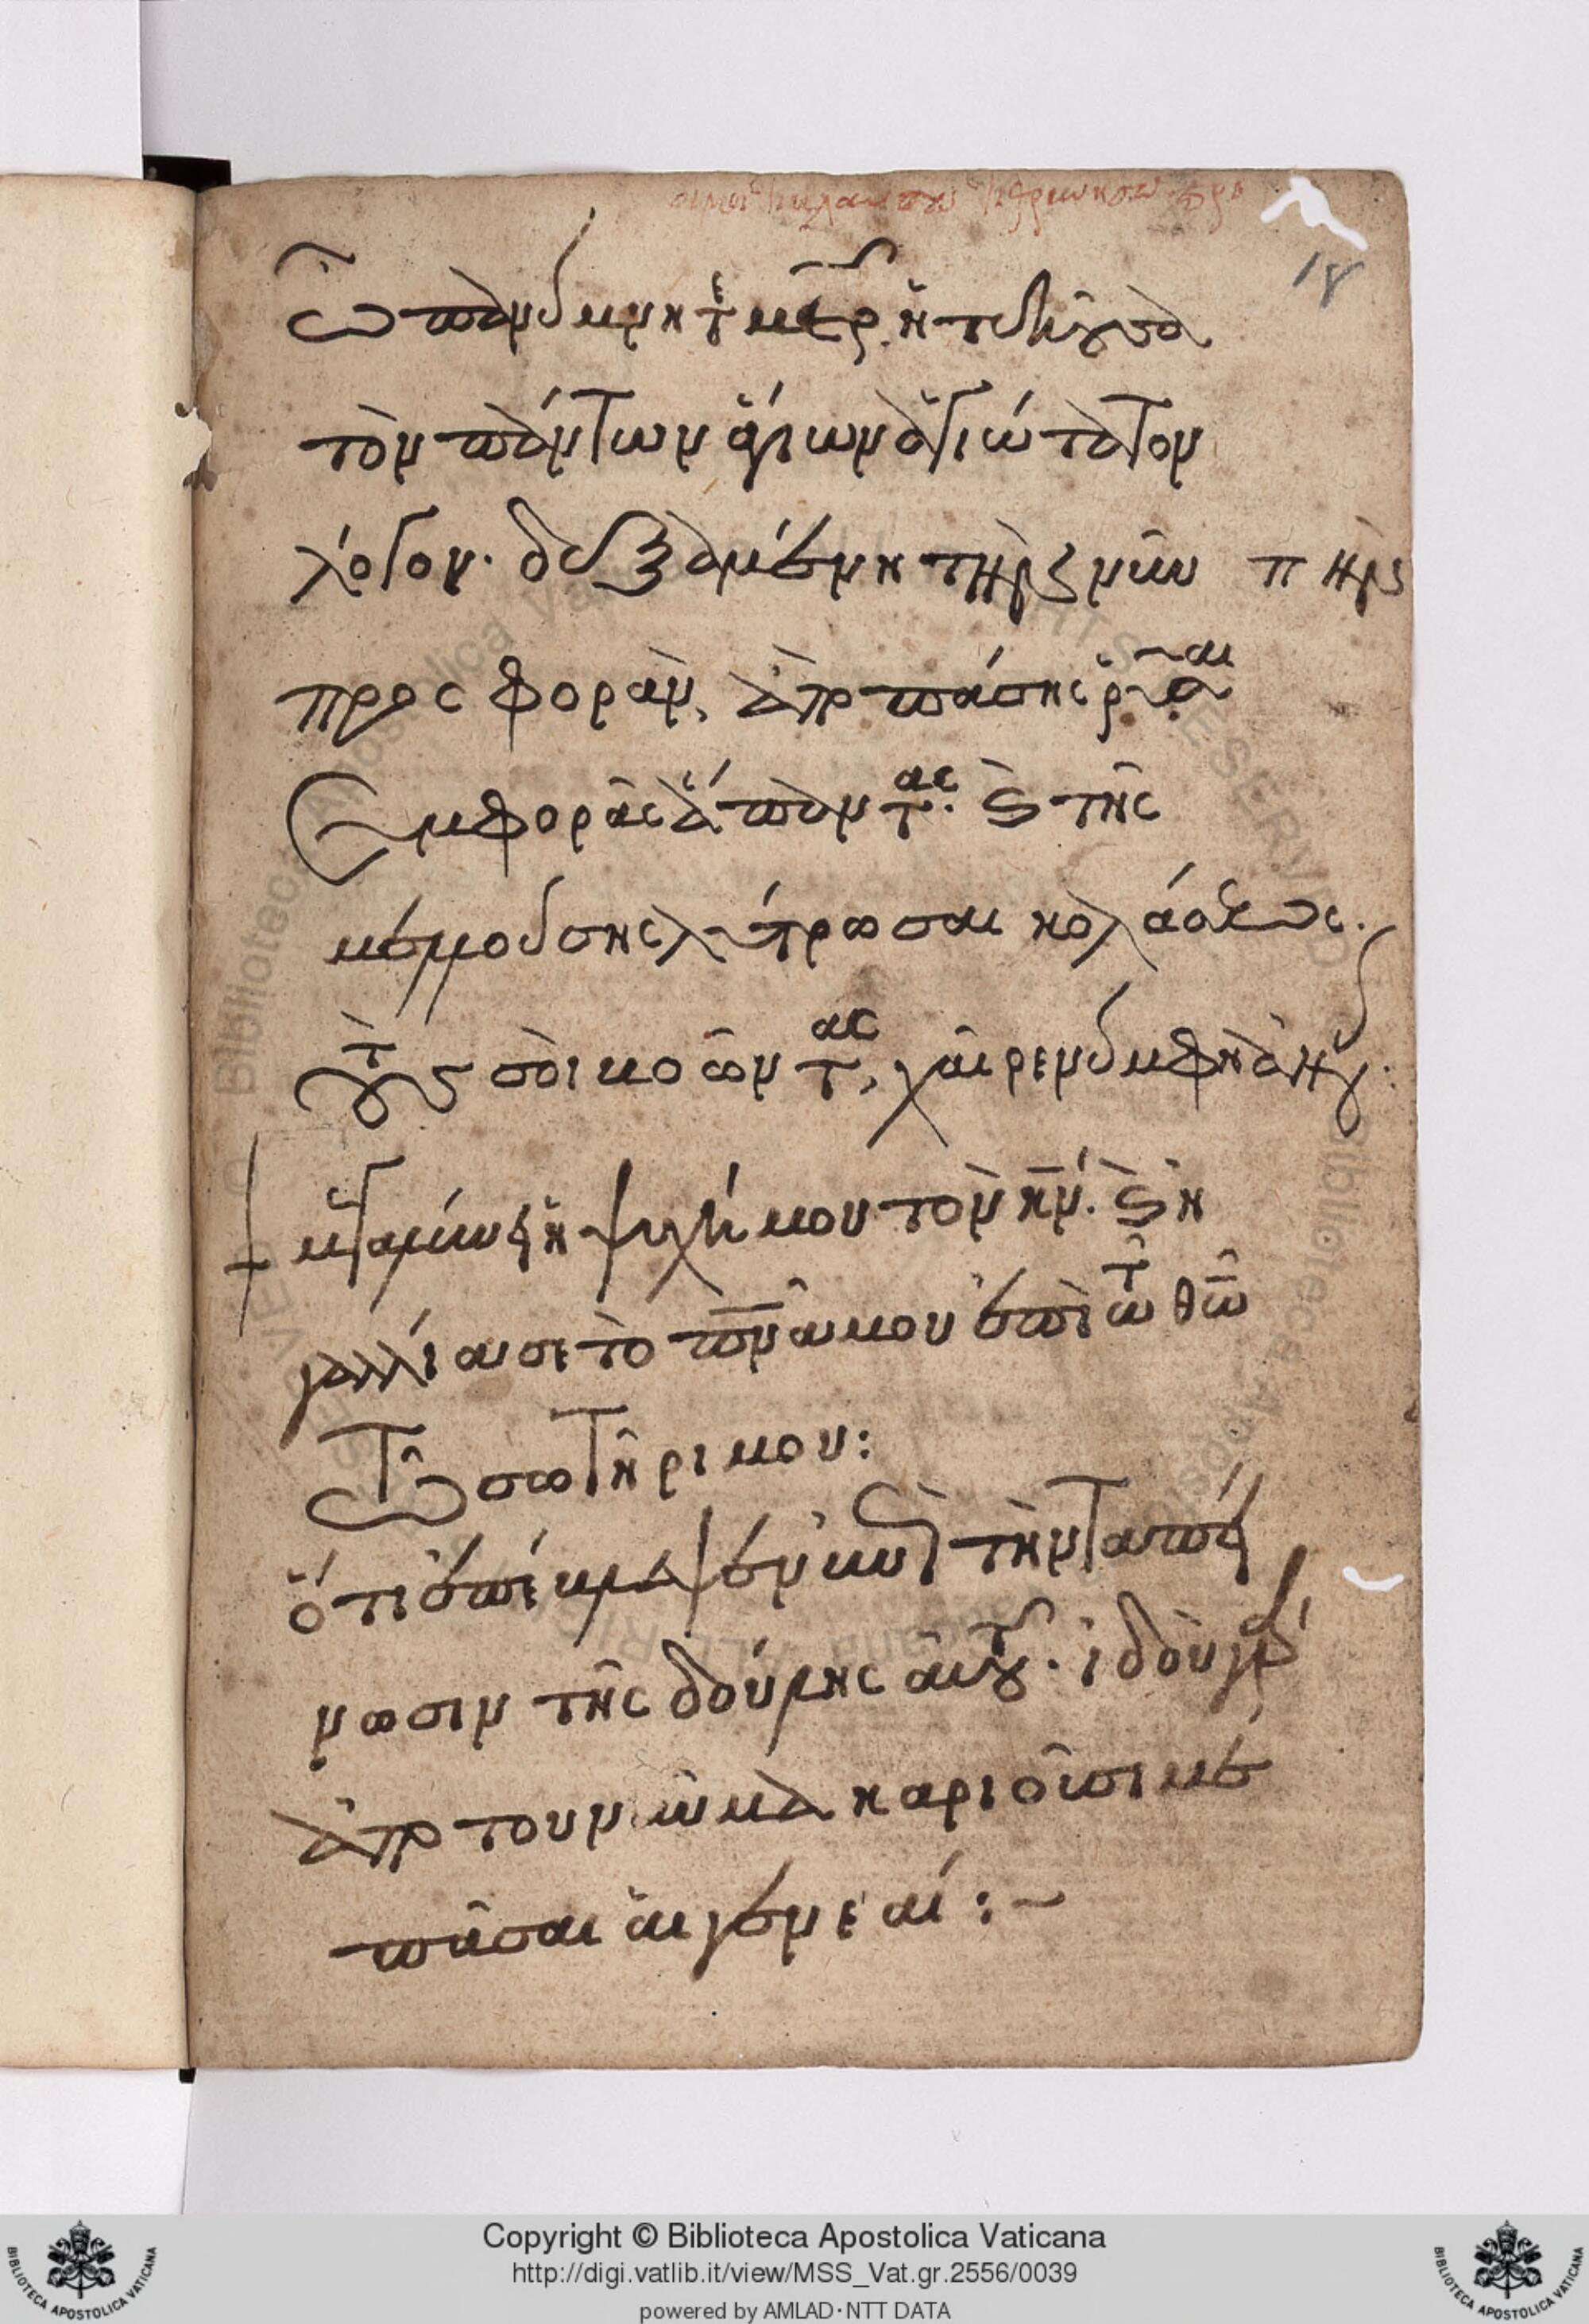 Ὦ πανύμνητε μῆτερ, ἡ τεκοῦσα
τὸν πάντων ἁγίων ἁγιώτατον
λόγον· δεξαμένη τὴν νῦν
προσφορὰν, ἀπὸ πάσης ρῦσαι
συμφορᾶς ἅπαντας· καὶ τῆς
μελλούσης λύτρωσαι κολάσεως.
τοὺς σοὶ βοῶντας, χαῖρε νύμφη ἀνύμ
μεγαλύνει ἡ ψυχή μου τὸν κν. καὶ ἠ
γαλλίασε το πνα μου ἐπὶ τῶ θω
τῶ σωτῆρι μου:
ὅτι ἐπέβλεψεν ἐπὶ τὴν ταπεί
νωσιν τῆς δούλης αὐτοῦ· ἰδοὺ γὰρ
ἀπὸ του νῦν μακαριοῦσι με
πᾶσαι αἱ γενεαί:~
18
Copyright © Biblioteca Apostolica Vaticana
http://digi.vatlib.it/view/MSS_Vat.gr.2556/0039
powered by AMLAD·NTT DATA
BIBLIOTECA APOSTOLICA VATICANA
BIBLIOTECA APOSTOLICA VATICANA